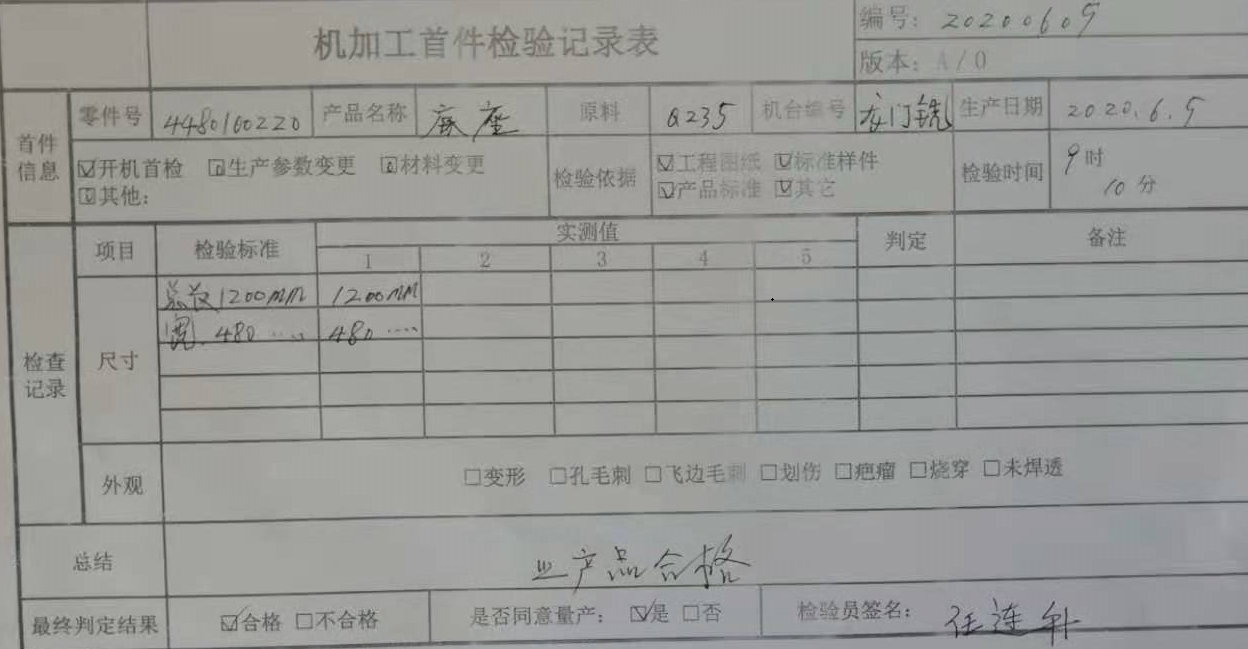 机加工首件检验记录表
编号: 20200605
版本: A/0
首件信息
零件号 4480100220 产品名称 底座 原料 Q235 机台编号 龙门铣 生产日期 2020.6.5
☑开机首检 生产参数变更 材料变更
其他:
检验依据
☑工程图纸 ☑标准样件
☑产品标准 ☑其它
检验时间 9时
10分
检查记录
项目 检验标准 实测值 判定 备注
1 2 3 4 5
尺寸
总长1200mm 1200mm
宽.480 ···· 480 ····
外观 □变形 □孔毛刺 □飞边毛刺 □划伤 □疤瘤 □烧穿 □未焊透
总结 产品合格
最终判定结果 ☑合格 □不合格 是否同意量产: ☑是 □否 检验员签名: 任连